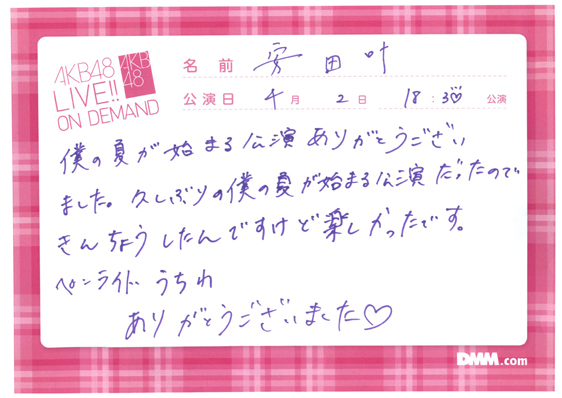 AKB48
LIVE!!
ON DEMAND
AKB
48
名前 安田叶
公演日 4月 2日 18:30♡ 公演
僕の夏が始まる公演ありがとうござい
ました。久しぶりの僕の夏が始まる公演だったので
きんちょうしたんですけど楽しかったです。
ペンライト うちわ
ありがとうございました♡
DMM.com